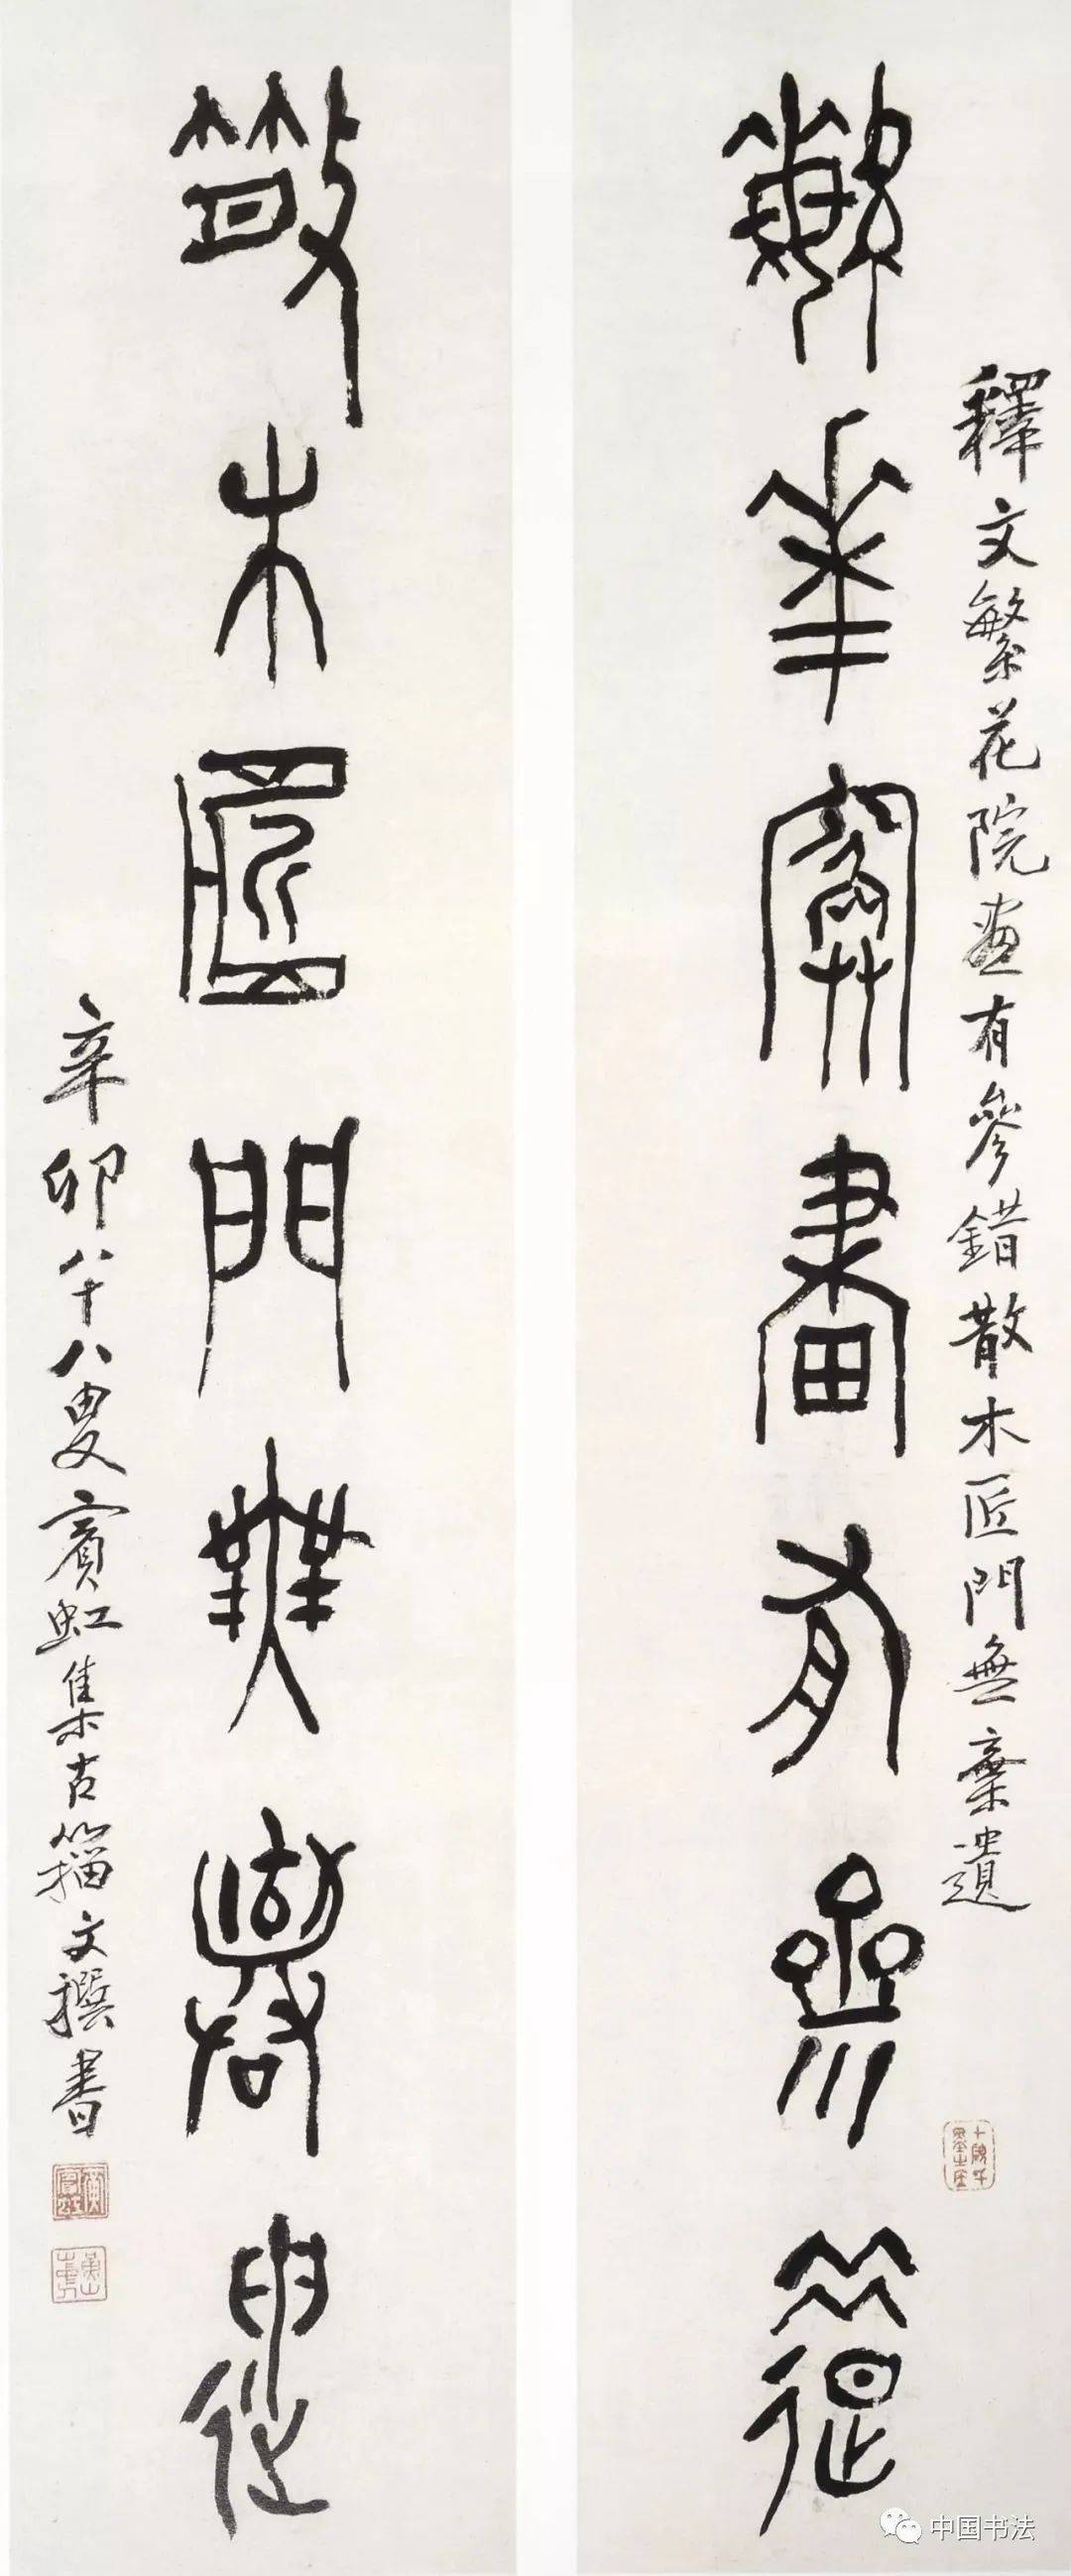 釋文繁花院畫有參錯散木匠門無棄遺
繁華院畫有參錯
散木匠門無棄遺
辛卯八十八叟賓虹集古籀文撰書
中国书法